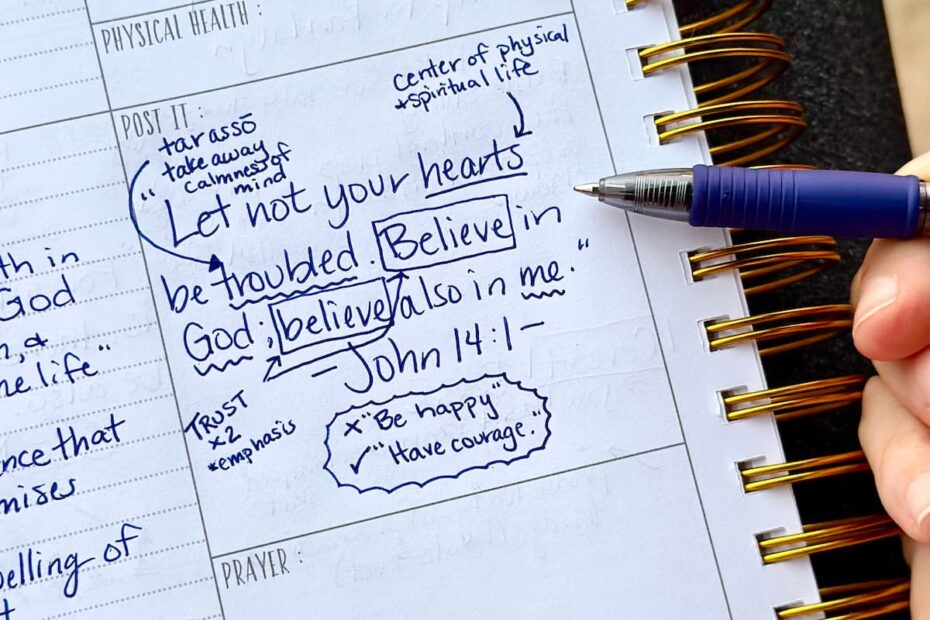 PHYSICAL HEALTH :
POST IT :
center of physical
+spiritual life
tarassō
take away
calmness of
mind
"Let not your hearts
be troubled. Believe in
God; believe also in me."
- John 14:1 -
TRUST
x2
*emphasis
x "Be happy"
✓ "Have courage."
PRAYER :
th in
God
life"
that
of